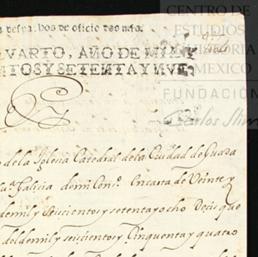 de oficio dos mrs.
VARTO, AÑO DE MIL Y
NTOS Y SETENTA Y NVE
CENTRO DE
ESTUDIOS
DE HISTORIA
DE MEXICO
FUNDACIÓN
Carlos Slim
de la Iglesia Catedral de la Ciudad de Guada
Galicia de mi Conº. En carta de Veinte y
de mil y Seiscientos y setenta y ocho Decis que
del de mil y seiscientos y Cinquenta y quatro